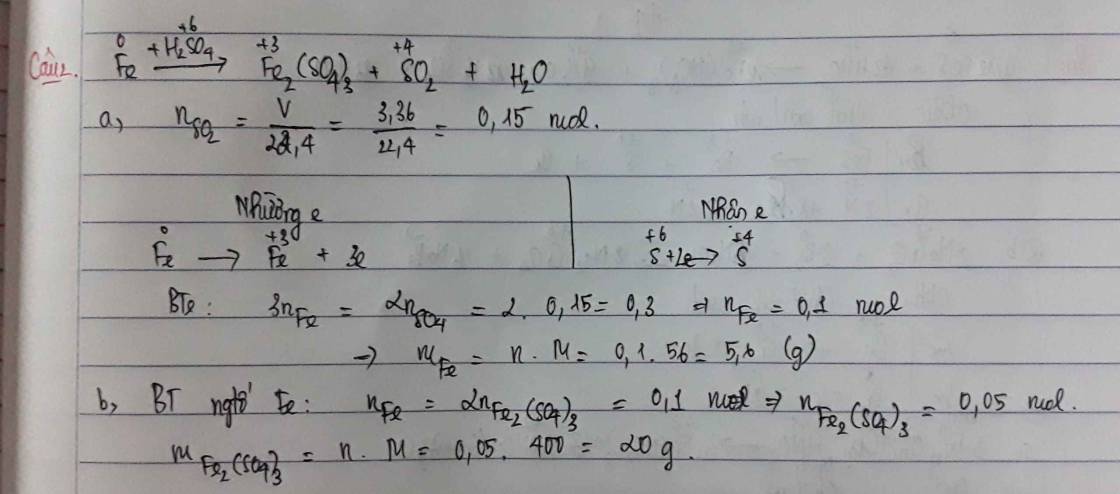 Câu 2. Fe⁰ + H₂S⁺⁶O₄ → Fe₂⁺³(SO₄)₃ + S⁺⁴O₂ + H₂O
a, n_SO₂ = V/22,4 = 3,36/22,4 = 0,15 mol.
Nhường e | Nhận e
Fe⁰ → Fe⁺³ + 3e | S⁺⁶ + 2e → S⁺⁴
BTe: 3n_Fe = 2n_SO₄ = 2. 0,15 = 0,3 ⇒ n_Fe = 0,1 mol
→ m_Fe = n. M = 0,1. 56 = 5,6 (g)
b, BT ngtố Fe: n_Fe = 2n_Fe₂(SO₄)₃ = 0,1 mol ⇒ n_Fe₂(SO₄)₃ = 0,05 mol.
m_Fe₂(SO₄)₃ = n. M = 0,05. 400 = 20 g.